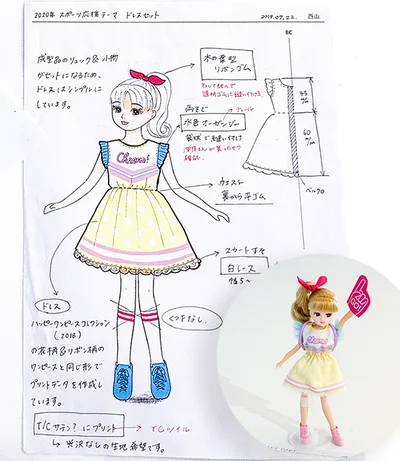 2020年 スポーツ応援テーマ ドレスセット
2019.07.22. 西山
成型品のリュック& 小物
がセットになるため、
ドレスはシンプルに
しています。
木の葉型
リボンゴム
両そで
チュール
水色オーガンジー
袋状で縫い付け
確認。
Cheers!
ウエスト
裏から平ゴム
BC
45
60
ベルクロ
スカートすそ
白レース
幅5〜
ドレス
くつ下なし。
ハッピーワンピースコレクション
(2018)
の花柄&リボン柄の
ワンピースと同じ形で
プリントデータを作成し
ています。
T/Cサテン? にプリント
→ T/Cツイル
↳ 光沢なしの生地希望です。
Cheers!